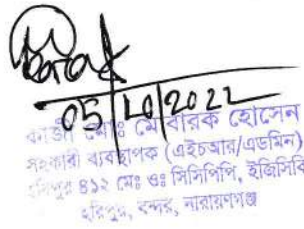 05/10/2022
কাজী মোঃ মোবারক হোসেন
সহকারী ব্যবস্থাপক (এইচআর/এডমিন)
হরিপুর ৪১২ মেঃ ওঃ সিসিপিপি, ইজিসিবি
হরিপুর, বন্দর, নারায়ণগঞ্জ